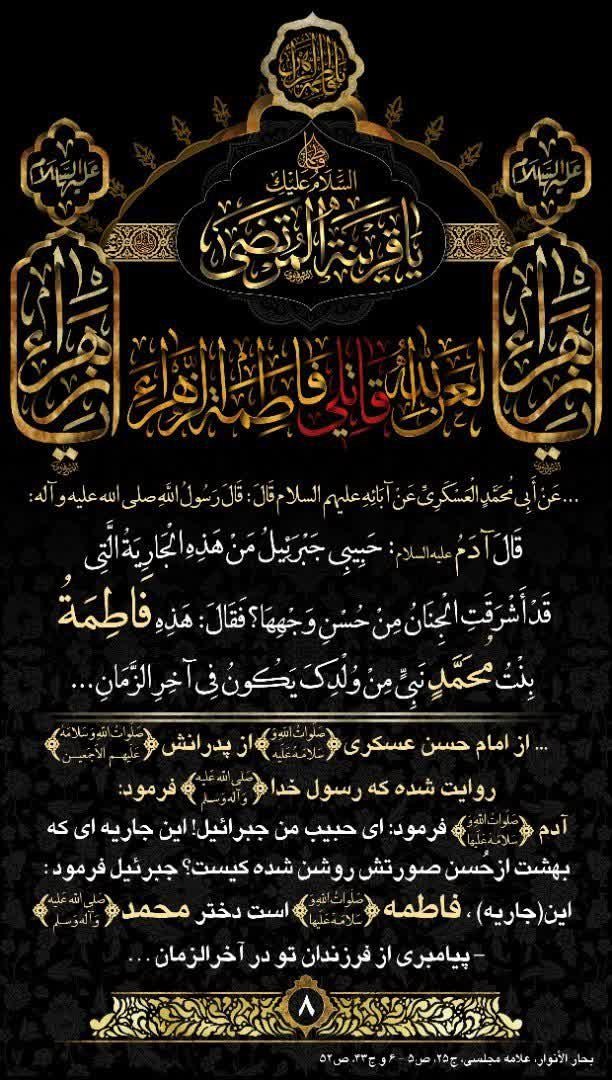 یا فاطمة الزهراء
علیها السلام
علیها السلام
السَّلامُ عَلَیْکِ
یا قَرینَةَ المُرتَضی
یا زهراء
یا زهراء
لعن الله قاتلی فاطمة الزهراء
...عَنْ أَبِی مُحَمَّدٍ الْعَسْکَرِیِّ عَنْ آبَائِهِ علیهم السلام قَالَ: قَالَ رَسُولُ اللَّهِ صلی الله علیه و آله:
قَالَ آدَمُ علیه السلام: حَبِیبِی جَبْرَئِیلُ مَنْ هَذِهِ الْجَارِیَةُ الَّتِی
قَدْ أَشْرَقَتِ الْجِنَانُ مِنْ حُسْنِ وَجْهِهَا؟ فَقَالَ: هَذِهِ فَاطِمَةُ
بِنْتُ مُحَمَّدٍ نَبِیٍّ مِنْ وُلْدِکَ یَکُونُ فِی آخِرِ الزَّمَانِ...
... از امام حسن عسکری ﴿صَلَواتُ اللهِ وَ سَلامُهُ عَلَیه﴾ از پدرانش ﴿صَلَواتُ اللهِ وَ سَلامُهُ عَلَیهِم الاَجمَعین﴾
روایت شده که رسول خدا ﴿صَلَّی الله عَلَیهِ وَآلِهِ وَسَلَّم﴾ فرمود:
آدم ﴿صَلَواتُ اللهِ وَ سَلامُهُ عَلَیها﴾ فرمود: ای حبیب من جبرائیل! این جاریه ای که
بهشت از حُسن صورتش روشن شده کیست؟ جبرئیل فرمود:
این(جاریه) ، فاطمه ﴿صَلَواتُ اللهِ وَ سَلامُهُ عَلَیها﴾ است دختر محمد ﴿صَلَّی الله عَلَیهِ وَآلِهِ وَسَلَّم﴾
– پیامبری از فرزندان تو در آخرالزمان ...
۸
بحار الأنوار، علامه مجلسی، ج۲۵، ص۵ – ۶ و ج۴۳، ص۵۲